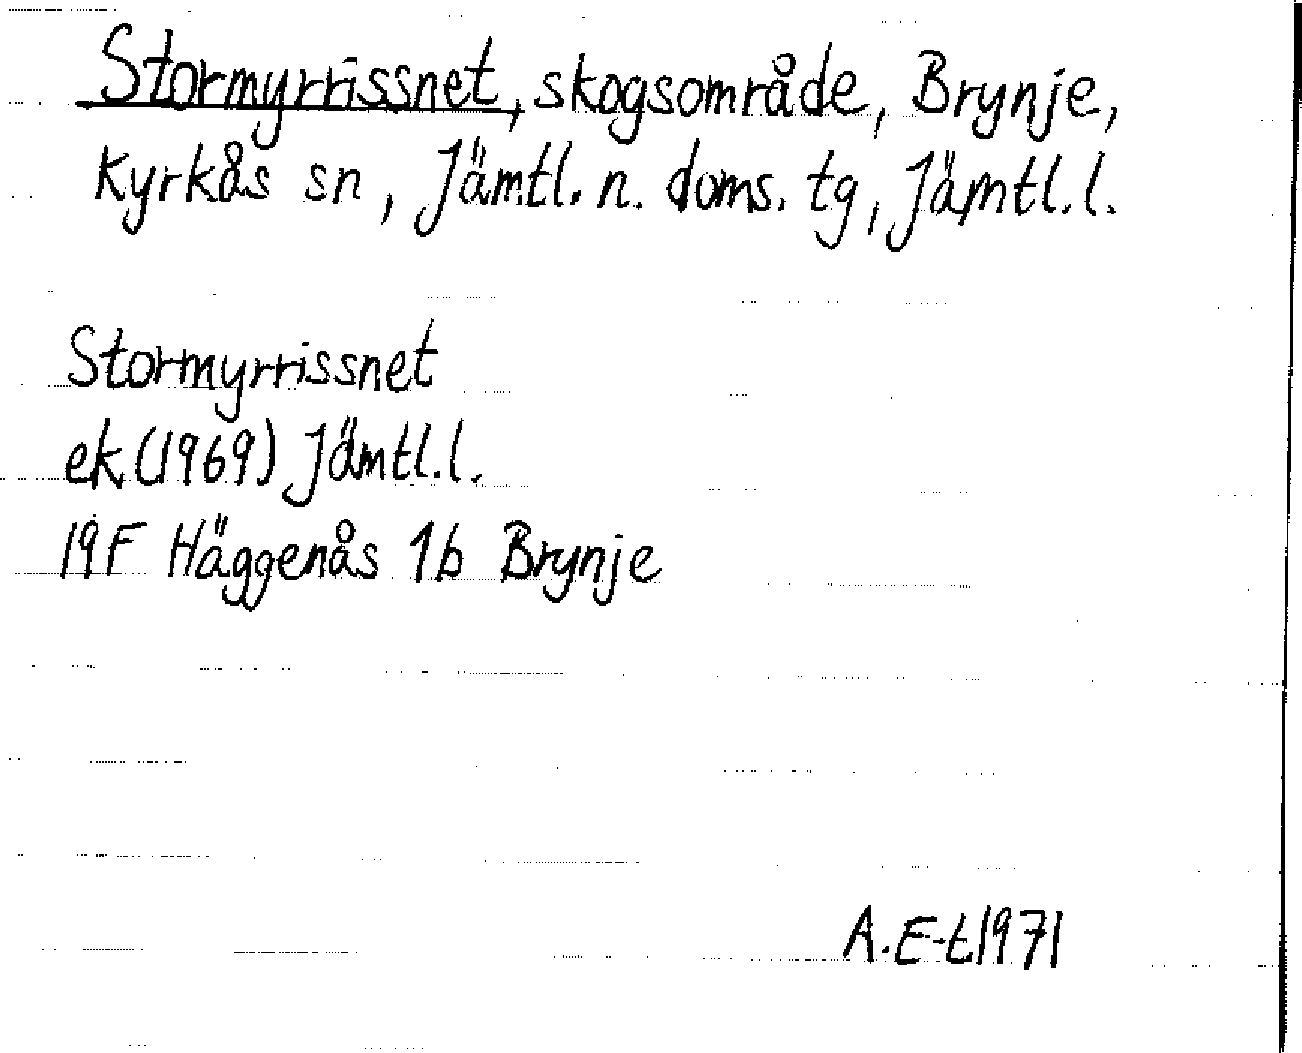 Stormyrrissnet, skogsområde, Brynje,
Kyrkås sn, Jämtl. n. doms. tg, Jämtl. l.
Stormyrrissnet
ek (1969) Jämtl. l.
19F Häggenås 1b Brynje
A. E-t 1971